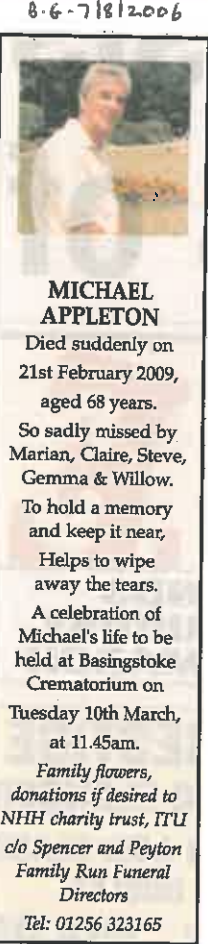 B.G-7/8/2006
MICHAEL
APPLETON
Died suddenly on
21st February 2009,
aged 68 years.
So sadly missed by
Marian, Claire, Steve,
Gemma & Willow.
To hold a memory
and keep it near,
Helps to wipe
away the tears.
A celebration of
Michael's life to be
held at Basingstoke
Crematorium on
Tuesday 10th March,
at 11.45am.
Family flowers,
donations if desired to
NHH charity trust, ITU
c/o Spencer and Peyton
Family Run Funeral
Directors
Tel: 01256 323165